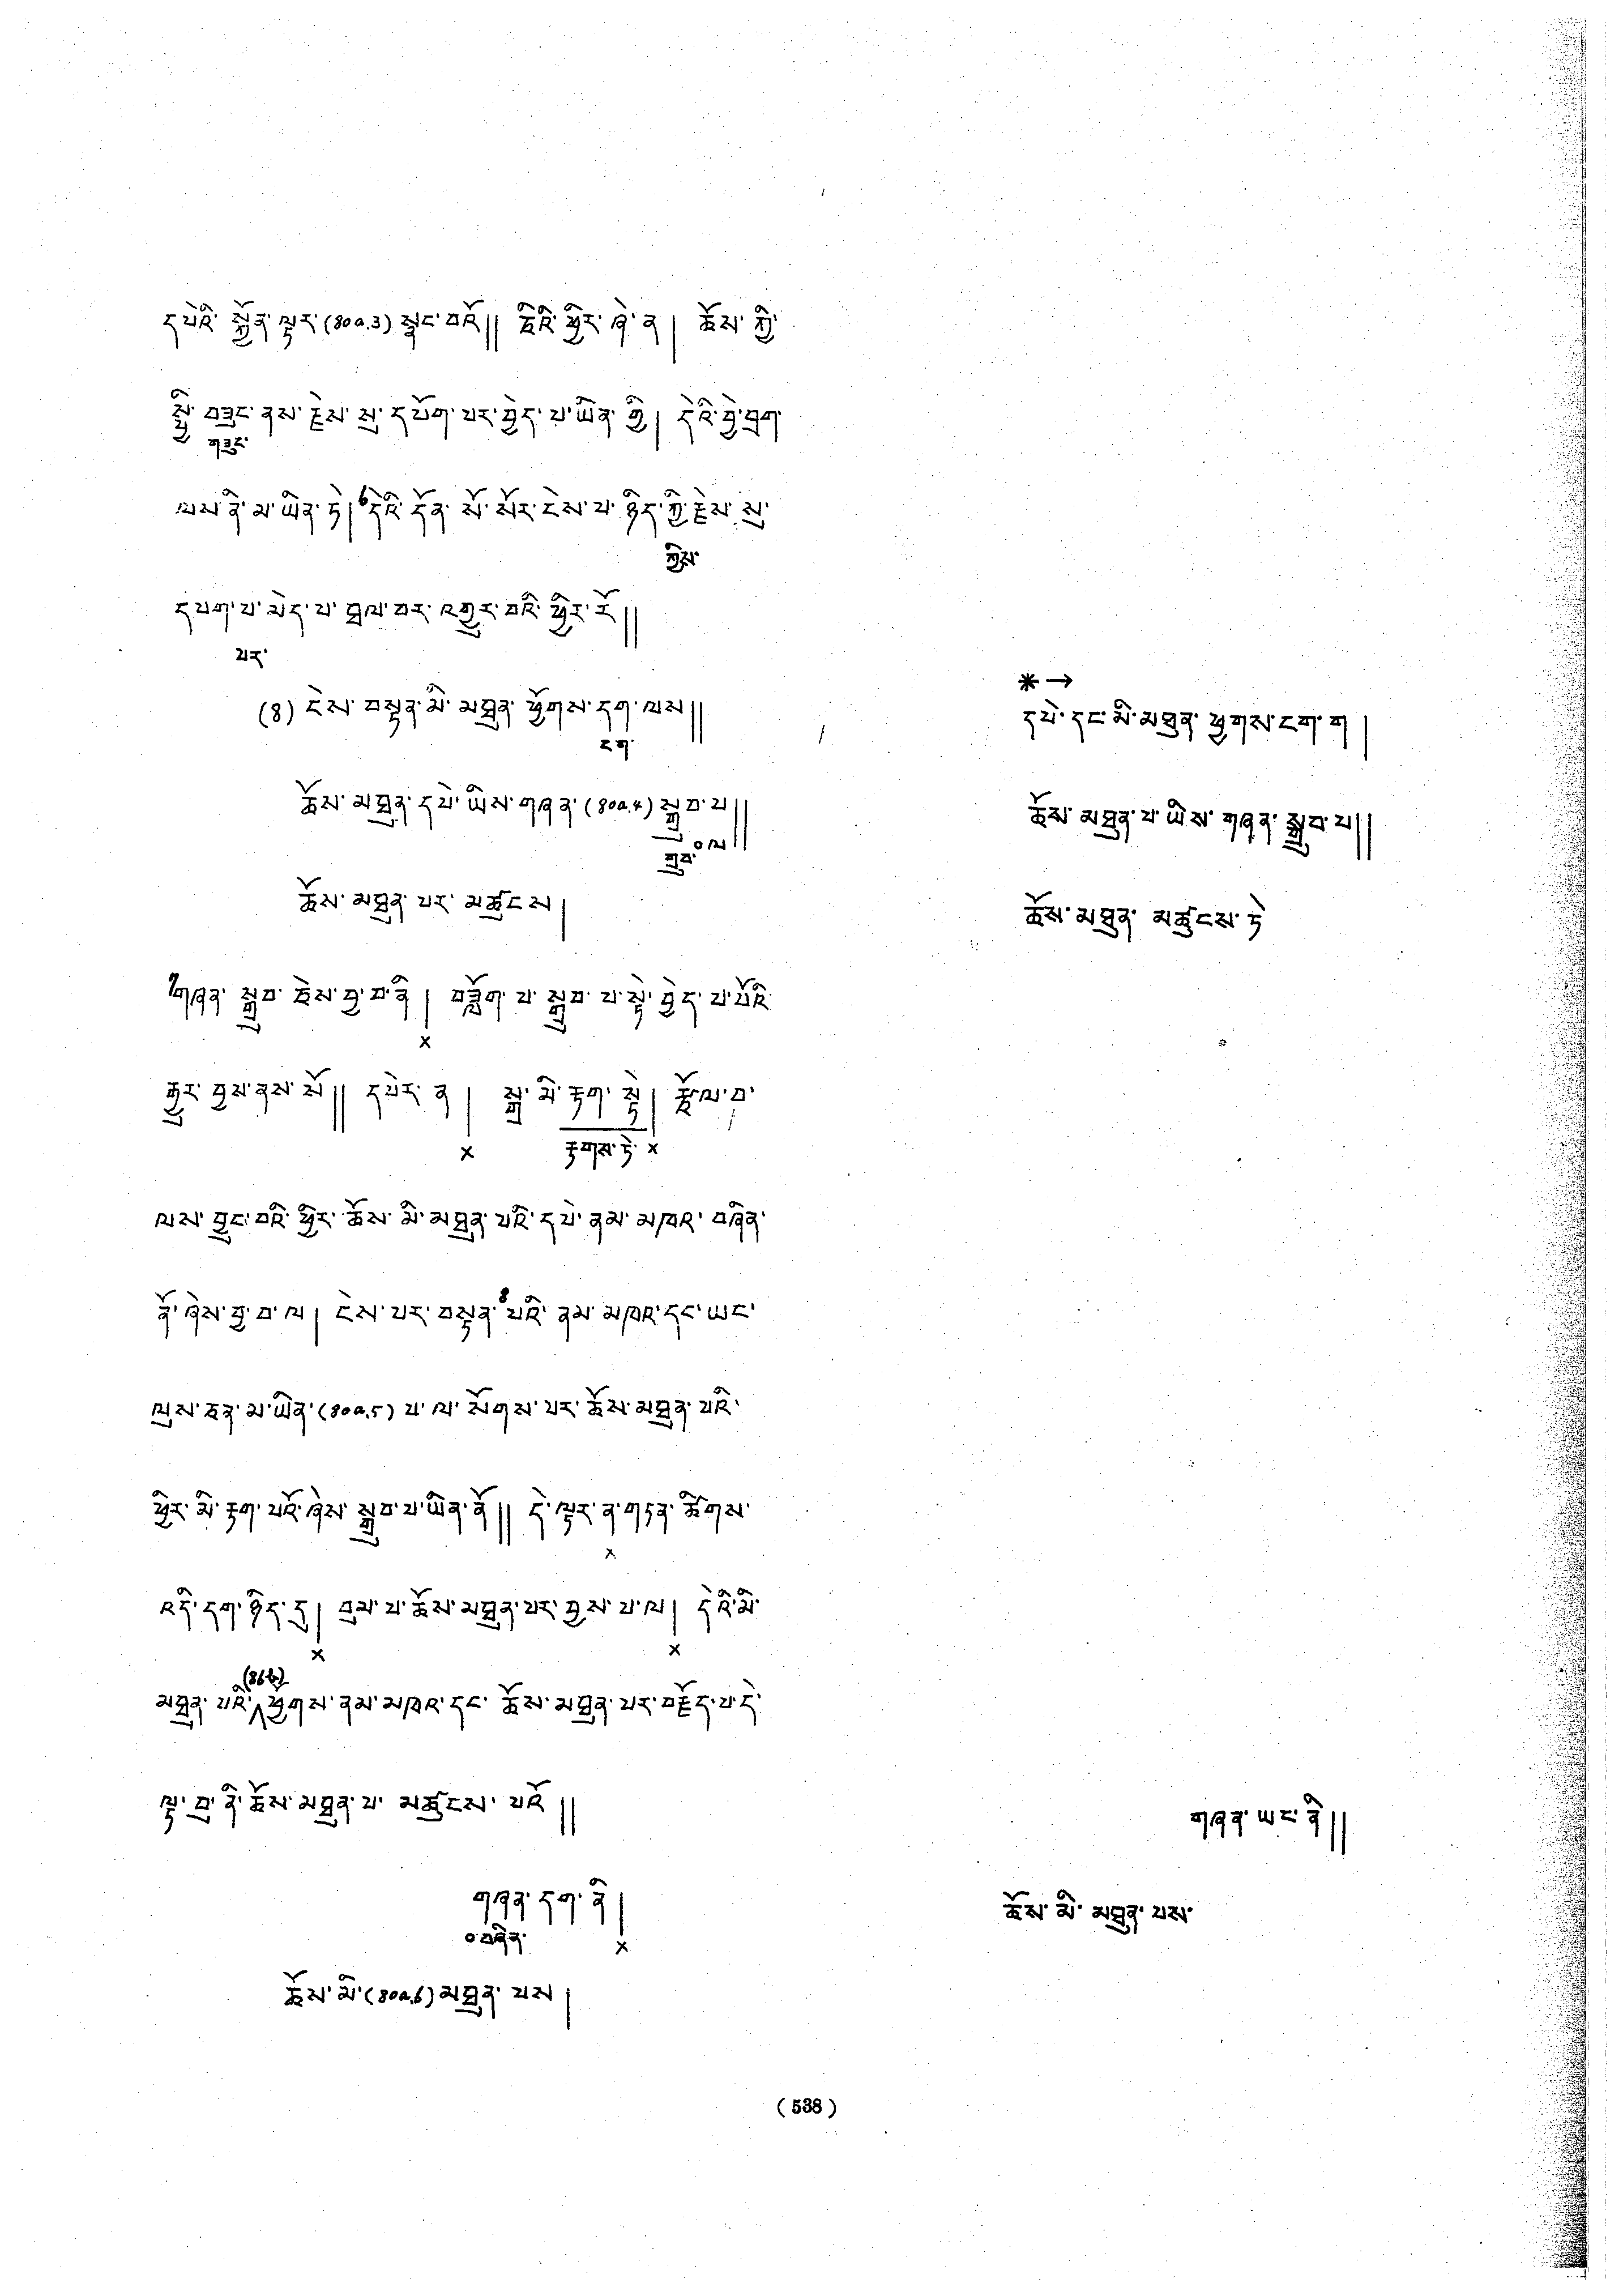 དཔེའི་ སྐྱོན་ ལྟར་ (80a.3) སྣང་ བའོ།། ཅིའི་ ཕྱིར་ ཞེ་ ན། ཆོས་ ཀྱི་
སྤྱི་ བཟུང་ ནས་ རྗེས་ སུ་ དཔོག་ པར་ བྱེད་ པ་ ཡིན་ གྱི། དེའི་ བྱེ་ བྲག་
གཟུང་
ལས་ ནི་ མ་ ཡིན་ ཏེ། 6 དེའི་ དོན་ སོ་ སོར་ ངེས་ པ་ ཉིད་ ཀྱི་ རྗེས་ སུ་
ཀྱིས་
དཔག་ པ་ མེད་ པ་ ཐལ་ བར་ འགྱུར་ བའི་ ཕྱིར་ རོ།།
པར་
(8) ངེས་ བསྟན་ མི་ མཐུན་ ཕྱོགས་ དག་ ལས།།
ངག་
ཆོས་ མཐུན་ དཔེ་ ཡིས་ གཞན་ (80a.4) སྒྲུབ་ པ།།
གྲུབ་ ० ལ
ཆོས་ མཐུན་ པར་ མཚུངས།
7 གཞན་ སྒྲུབ་ ཅེས་ བྱ་ བ་ ནི། བཟློག་ པ་ སྒྲུབ་ པ་ སྟེ་ བྱེད་ པ་ པོའི་
×
རྒྱུར་ བྱས་ ནས་ སོ།། དཔེར་ ན། སྒྲ་ མི་ རྟག་ སྟེ། རྩོལ་ བ་
× རྟགས་ ཏེ་ ×
ལས་ བྱུང་ བའི་ ཕྱིར་ ཆོས་ མི་ མཐུན་ པའི་ དཔེ་ ནམ་ མཁའ་ བཞིན་
ནོ་ ཞེས་ བྱ་ བ་ ལ། ངེས་ པར་ བསྟན་ 8 པའི་ ནམ་ མཁའ་ དང་ ཡང་
ལུས་ ཅན་ མ་ ཡིན་ (80a.5) པ་ ལ་ སོགས་ པར་ ཆོས་ མཐུན་ པའི་
ཕྱིར་ མི་ རྟག་ པའོ་ ཞེས་ སྒྲུབ་ པ་ ཡིན་ ནོ།། དེ་ ལྟར་ ན་ གཏན་ ཚིགས་
×
འདི་ དག་ ཉིད་ དུ། བུམ་ པ་ ཆོས་ མཐུན་ པར་ བྱས་ པ་ ལ། དེའི་ མི་
× ×
(86b)
མཐུན་ པའི་ ∧ ཕྱོགས་ ནམ་ མཁའ་ དང་ ཆོས་ མཐུན་ པར་ བརྗོད་ པ་ དེ་
ལྟ་ བུ་ ནི་ ཆོས་ མཐུན་ པ་ མཚུངས་ པའོ།།
གཞན་ དག་ ནི།
० བཞིན་ ×
ཆོས་ མི་ (80a.6) མཐུན་ པས།
* →
དཔེ་ དང་ མི་ མཐུན་ ཕྱགས་ ངག་ ག།
ཆོས་ མཐུན་ པ་ ཡིས་ གཞན་ སྒྲུབ་ པ།།
ཆོས་ མཐུན་ མཚུངས་ ཏེ
གཞན་ ཡང་ ནི།།
ཆོས་ མི་ མཐུན་ པས་
(538)